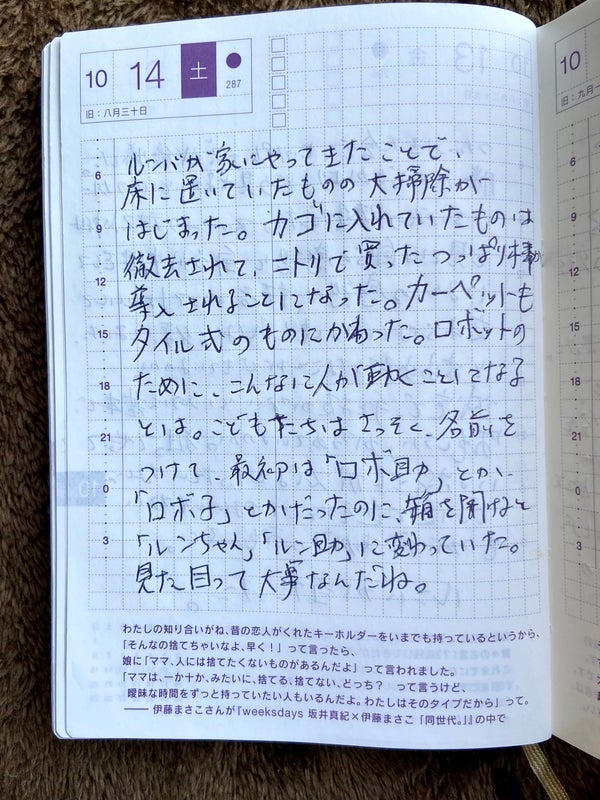 10 14 土 287
旧:八月三十日
6
9
12
15
18
21
0
3
ルンバが家にやってきたことで、
床に置いていたものの大掃除が
はじまった。カゴに入れていたものは
撤去されて、ニトリで買ったつっぱり棒が
導入されることになった。カーペットも
タイル式のものにかわった。ロボットの
ために、こんなに人が動くことになる
とは。こどもたちはさっそく、名前を
つけて、最初は「ロボ助」とか、
「ロボ子」とかだったのに、箱を開けると
「ルンちゃん」「ルン助」に変わっていた。
見た目って大事なんだね。
わたしの知り合いがね、昔の恋人がくれたキーホルダーをいまでも持っているというから、
「そんなの捨てちゃいなよ、早く!」って言ったら、
娘に「ママ、人には捨てたくないものがあるんだよ」って言われました。
「ママは、一か十か、みたいに、捨てる、捨てない、どっち? って言うけど、
曖昧な時間をずっと持っていたい人もいるんだよ。わたしはそのタイプだから」って。
—— 伊藤まさこさんが『weeksdays 坂井真紀×伊藤まさこ「同世代。」』の中で
10
旧:九月一
6
9
12
15
18
21
0
3